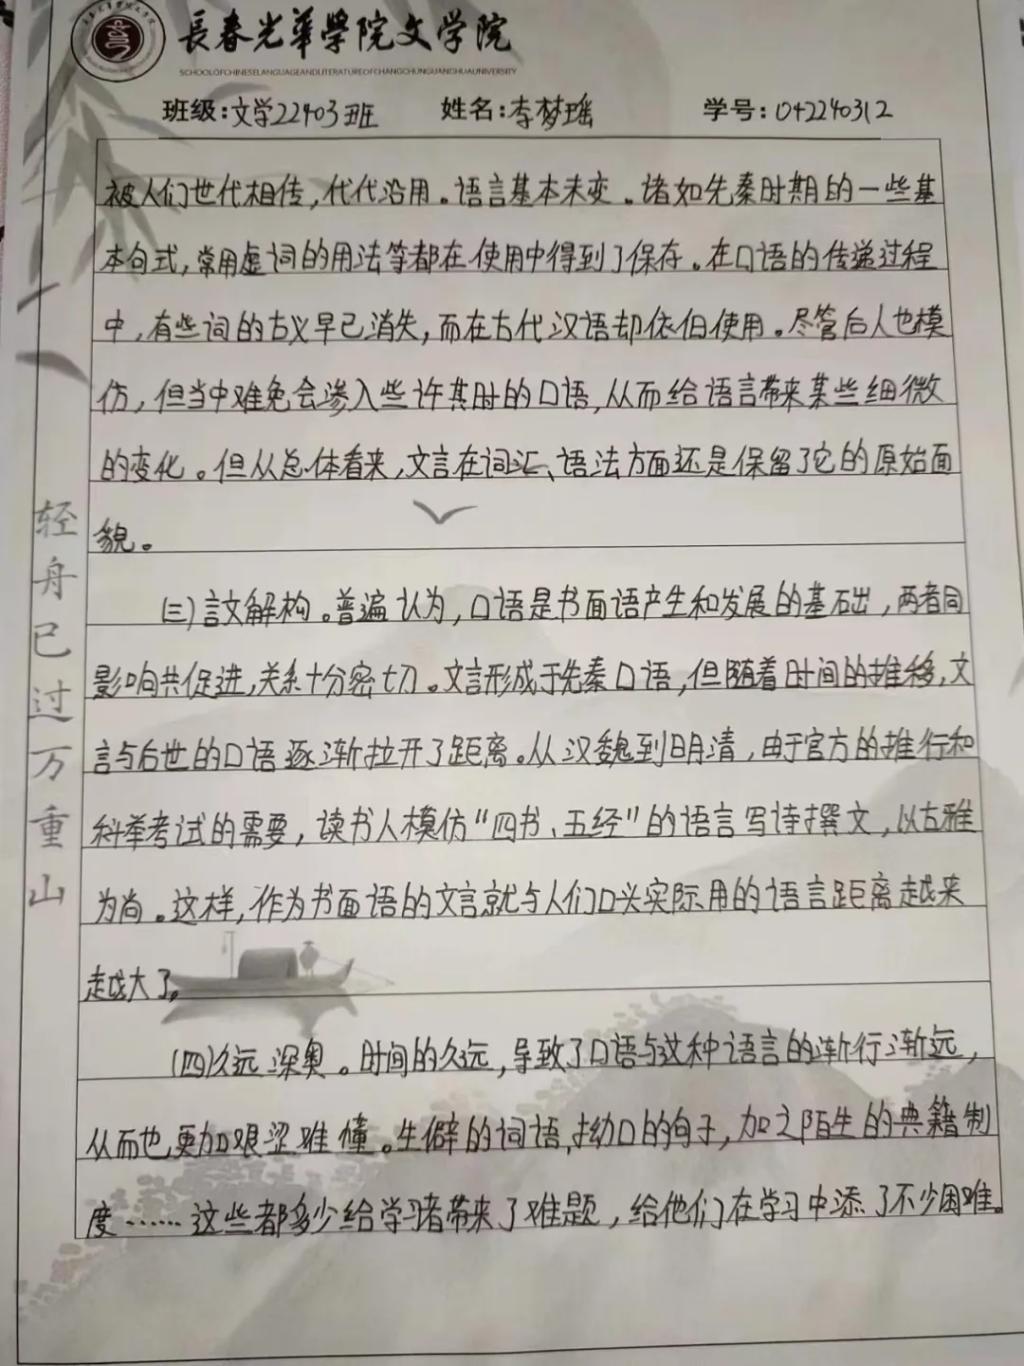 長春光華學院文学院
SCHOOLOFCHINESELANGUAGEANDLITERATUREOFCHANGCHUNGUANGHUAUNIVERSITY
班级:文学22403班 姓名:李梦瑶 学号:042240312
被人们世代相传,代代沿用。语言基本未变。诸如先秦时期的一些基
本句式,常用虚词的用法等都在使用中得到了保存。在口语的传递过程
中,有些词的古义早已消失,而在古代汉语却依旧使用。尽管后人也模
仿,但当中难免会渗入些许其时的口语,从而给语言带来某些细微
的变化。但从总体看来,文言在词汇、语法方面还是保留了它的原始面
貌。
(三)言文解构。普遍认为,口语是书面语产生和发展的基础,两者同
影响共促进,关系十分密切。文言形成于先秦口语,但随着时间的推移,文
言与后世的口语逐渐拉开了距离。从汉魏到明清,由于官方的推行和
科举考试的需要,读书人模仿“四书、五经”的语言写诗撰文,以古雅
为尚。这样,作为书面语的文言就与人们口头实际用的语言距离越来
越大了。
(四)久远深奥。时间的久远,导致了口语与这种语言的渐行渐远,
从而也更加艰涩难懂。生僻的词语,拗口的句子,加之陌生的典籍制
度……这些都多少给学习者带来了难题,给他们在学习中添了不少困难。
轻舟已过万重山